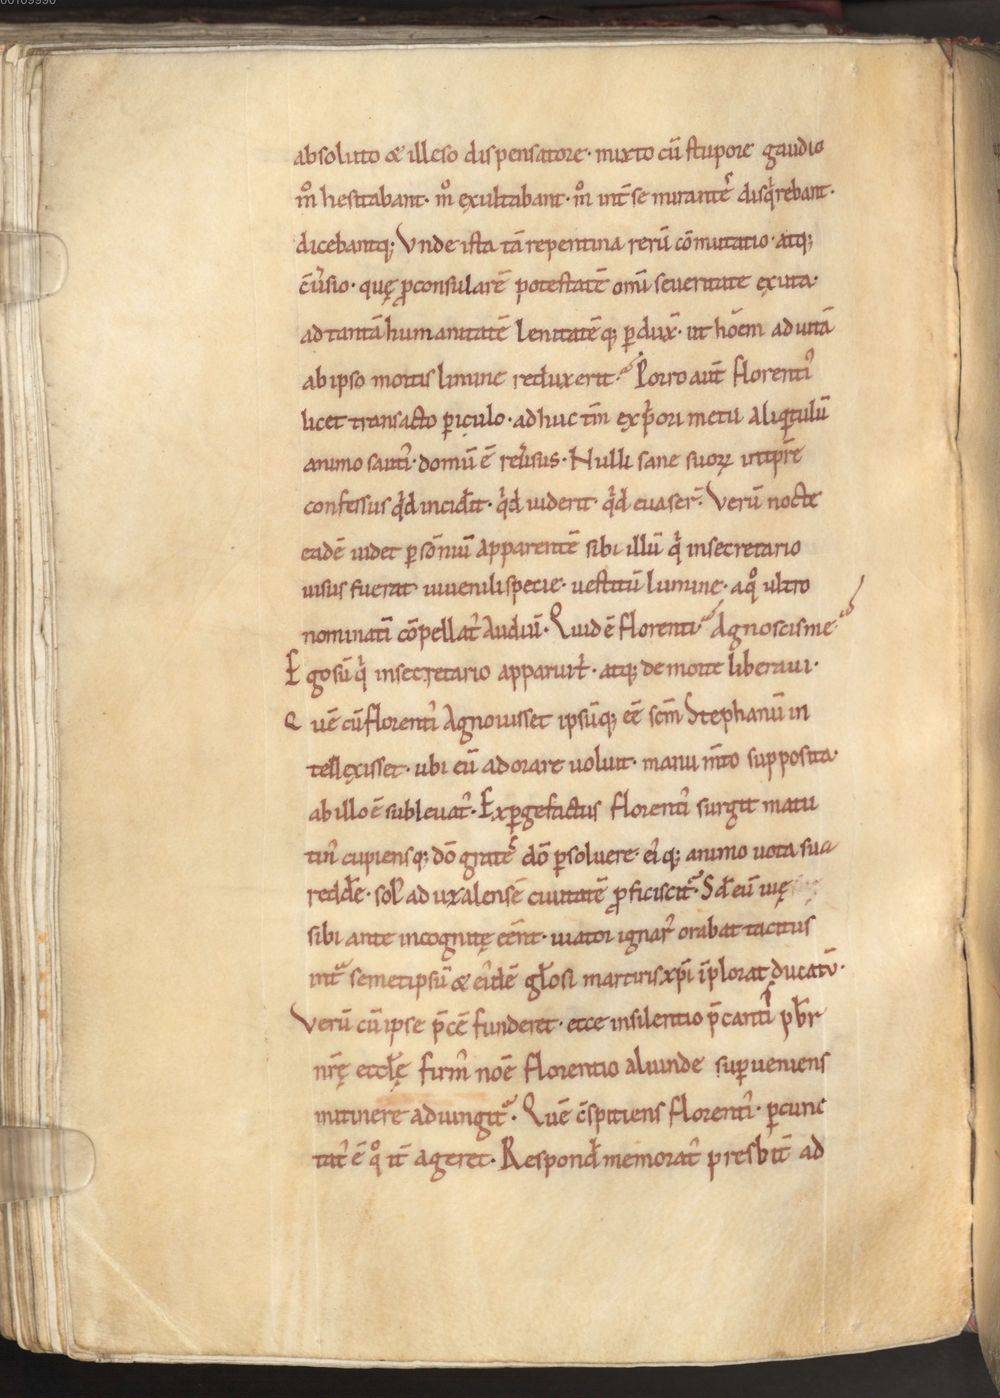 absoluto & illeso dispensatore· mixto cū stupore gaudio
m̊ hesitabant· m̊ exultabant· m̊ int̄ se mirantes disq̇rebant·
dicebantq; Vnde ista tā repentina rerū cōmutatio· atq;
c̄uersio· quę ꝓconsularē potestatē omī seueritate exuta·
ad tantā humanitatē lenitatēq; ꝑdux̄· ut hōem ad uitā
ab ipso mortis limine reduxerit. Porro aut̄ florenti᾿
licet transacto ꝑiculo· adhuc tm̄ ex p̄ori metu aliq̇tulū
animo sauti᾿· domū ē reuersus· Nulli sane suoꝝ intip̄re
confessus qd̄ incidit· qd̄ uiderit· qd̄ euaser̄· Verū nocte
eadē uidet ꝑ sōniū apparentē sibi illū q̇ in secretario
uisus fuerat iuuenili specie· uestitū lumine· a q̊ ultro
nominatī cōpellat᾿ audiū· Quid ē florenti· Agnoscis me·
Ego sū q̇ in secretario apparui t̄· atq; de morte liberaui·
Quē cū florenti᾿ agnouisset ipsūq; eē scm̄ Stephanū in
tellexisset· ubi eū adorare uoluit· manu m̄to supposita·
ab illo ē subleuat᾿· Exꝑgefactus florenti᾿ surgit matu
tin᾿ cupiensq; dō grates dō ꝑsoluere· ei᾿q; animo uota sua
redde· sol᾿ ad uxalensē ciuitatē ꝓficiscit᾿· Sd̄ eū uię
sibi ante incognitę eēnt· uiator ignar᾿ orabat tacitus
int̄ semetipsū & ei᾿dē gl̄osi martiris xp̄i īplorat ducatū·
Verū cū ipse p̄cē funderet· ecce in silentio p̄canti pb̄r
nr̄ę eccl̄ę firm᾿ noē florentio aliunde suꝑueniens
in itinere adiungit᾿· Quē c̄spitiens florenti᾿· ꝑcunc
tat᾿ ē q̊ it̄ ageret· Respond̄ memorat᾿ presbit̄ ad